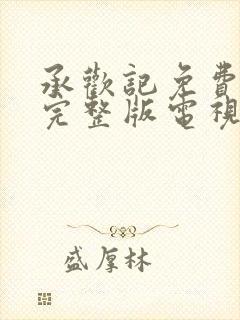 承歡記免費
完整版電視
盛厚林